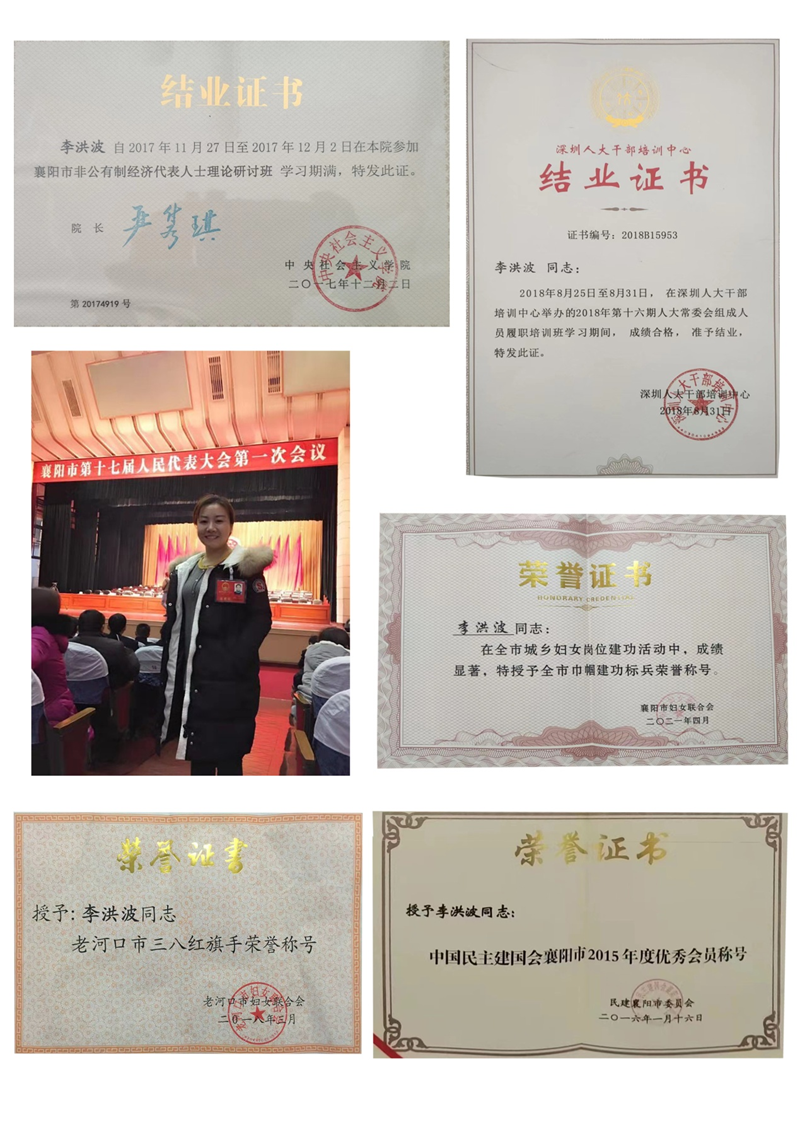 结业证书
李洪波 自2017年11月27日至2017年12月2日在本院参加
襄阳市非公有制经济代表人士理论研讨班 学习期满，特发此证。
院 长 严隽琪
中央社会主义学院
二〇一七年十二月二日
第 20174919 号
深圳人大干部培训中心
结业证书
证书编号：2018B15953
李洪波 同志：
2018年8月25日至8月31日， 在深圳人大干部
培训中心举办的2018年第十六期人大常委会组成人
员履职培训班学习期间， 成绩合格， 准予结业，
特发此证。
深圳人大干部培训中心
2018年8月31日
襄阳市第十七届人民代表大会第一次会议
荣誉证书
HONORARY CREDENTIAL
李洪波 同志：
在全市城乡妇女岗位建功活动中，成绩
显著，特授予全市巾帼建功标兵荣誉称号。
襄阳市妇女联合会
二〇二一年四月
荣誉证书
授予：李洪波同志
老河口市三八红旗手荣誉称号
老河口市妇女联合会
二〇一八年三月
荣誉证书
授予李洪波同志：
中国民主建国会襄阳市2015年度优秀会员称号
民建襄阳市委员会
二〇一六年一月十六日